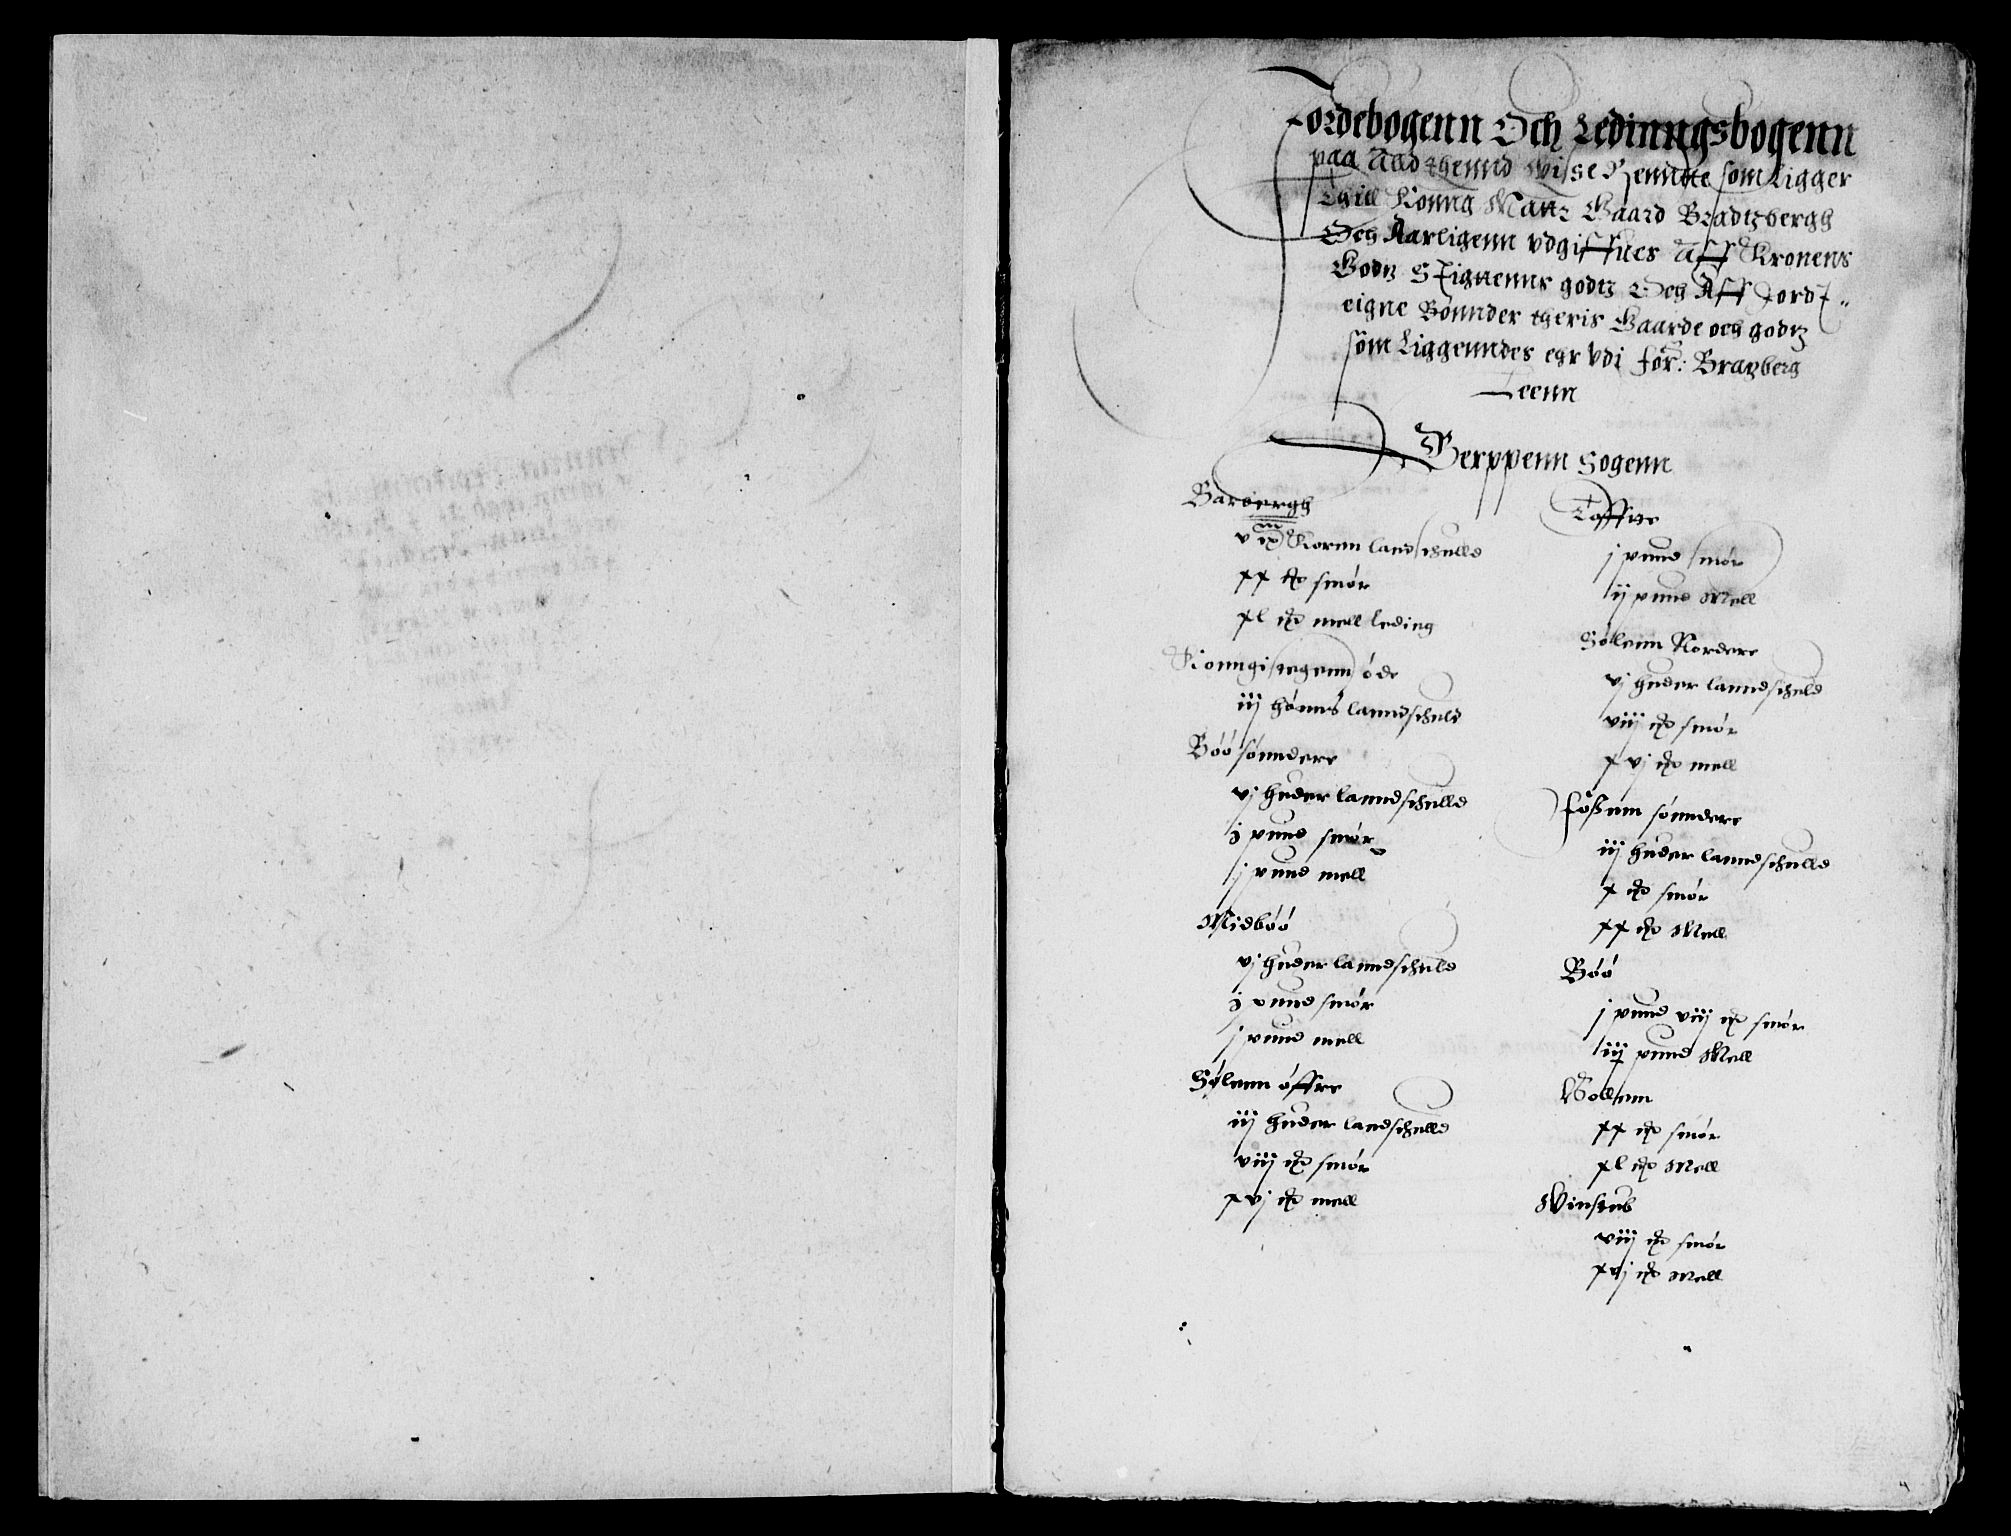 Jordebogenn Och Ledinngsbogenn
paa Alld thennd Wisse Rennte som Ligger
Thill Konng Matz Gaard Bradtzbergh
Och Aarligenn vdgiffues Aff Kronens
Godtz Stigtenns godtz Och Aff Jord
eigne Bønnder theris Gaarde och godtz
som Liggenndes ehr vdi for: Bratzberg
Leenn
Gerppenn Sogenn
Barbergh
v Kornn landschulld
xx smør
xl mell leding
øde
iij lanndschuld
Bøø sønndere
vj huder lanndschulld
j pund smør
j pund mell
Midbøø
vj huder lanndschuld
j pund smør
j pund mell
Sølenn øffre
iij huder landschulld
viij smør
xvj mell
Tofftte
j pund smør
ij pund Mell
Sølenn Nordere
vj huder lanndschuld
viij smør
xvj mell
Foßum sønndere
iij huder lanndschulld
x smør
xx Mell
Bøø
j pund viij smør
iij pund Mell
Vollenn
xx smør
xl Mell
Winstub
viij smør
xvj Mell